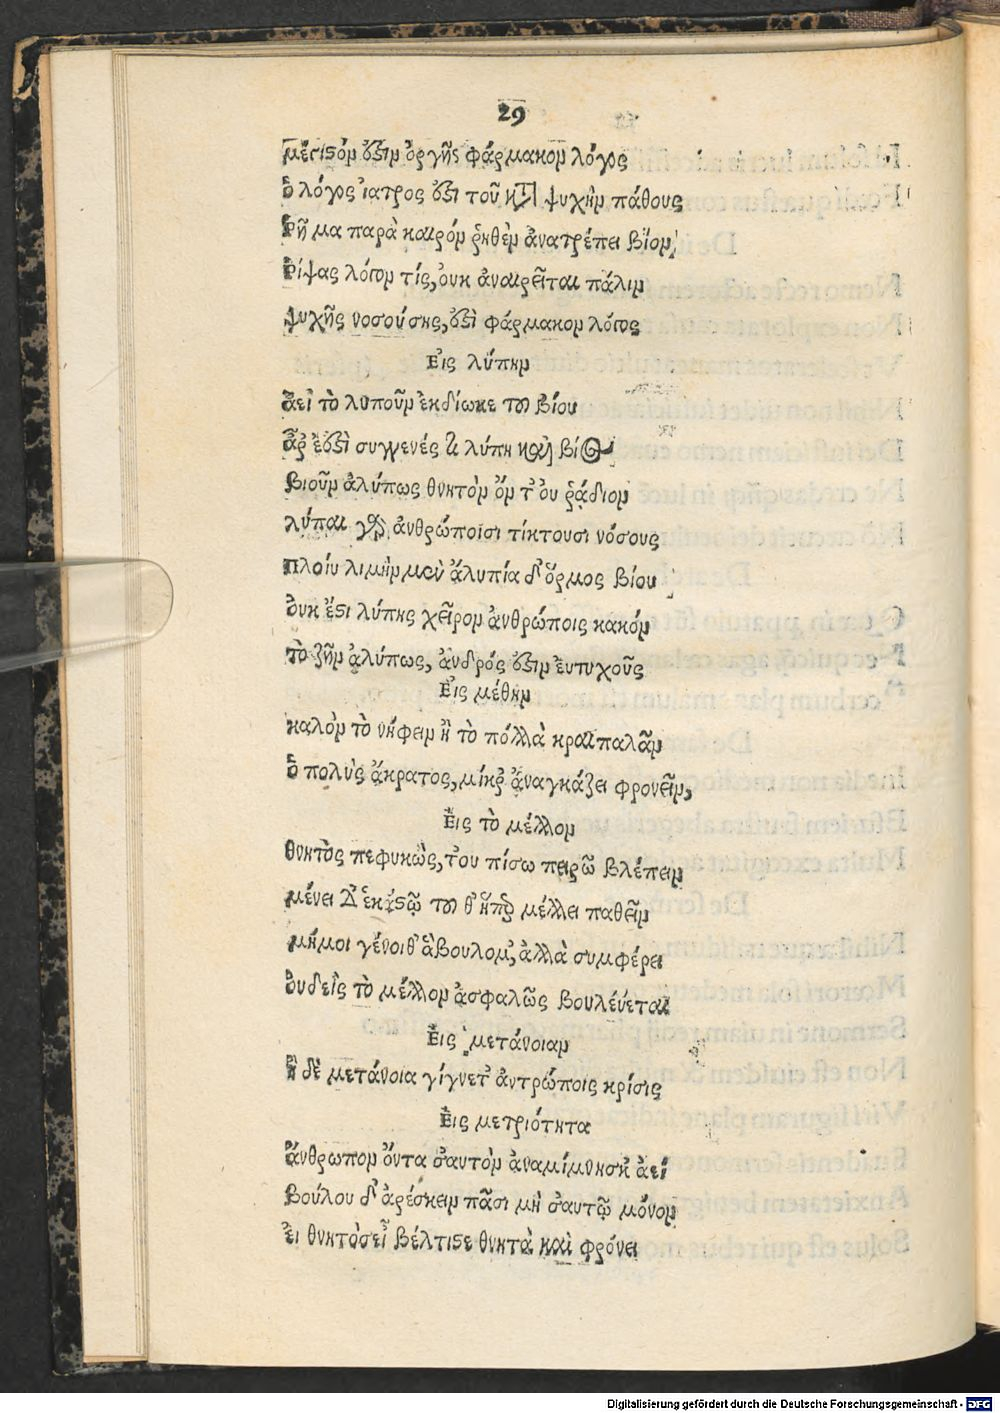 29
μέγιστόν ἐστιν ὀργῆς φάρμακον λόγος
ὁ λόγος ἰατρὸς ἐστὶ τοῦ κατὰ ψυχὴν πάθους
ῥῆμα παρὰ καιρόν ῥηθὲν ἀνατρέπει βίον
ῥίψας λόγον τίς, ὀυκ ἀναιρεῖται πάλιν
ψυχῆς νοσούσης, ἐστὶ φάρμακον λόγος
Εἰς λύπην
ἀεὶ τὸ λυποῦν ἐκδίωκε τοῦ βίου
ἆρ ἐστὶ συγγενές τι λύπη καὶ βίος
βιοῦν ἀλύπως θνητὸν ὄν τ' ὀυ ῥάδιον
λύπαι γὰρ ἀνθρώποισι τίκτουσι νόσους
πλοίου λιμὴν μὲν ἀλυπία δ' ὅρμος βίου
ὀυκ ἔστι λύπης χεῖρον ἀνθρώποις κακόν
τὸ ζῆν ἀλύπως, ἀνδρός ἐστιν ἐυτυχοῦς
Εἰς μέθην
καλὸν τὸ νήφειν ἢ τὸ πόλλὰ κραιπαλᾶν
ὁ πολὺς ἄκρατος, μίκρ' ἀναγκάζει φρονεῖν,
Εἰς τὸ μέλλον
θνητὸς πεφυκὼς, τ' ὀυ πίσω πειρῶ βλέπειν
μένει δ' ἑκάστῳ τοῦθ' ὅπερ μέλλει παθεῖν
μήμοι γένοιθ' ἃ βουλομ', ἀλλὰ συμφέρει
ὀυδεὶς τὸ μέλλον ἀσφαλῶς βουλέυεται
Εἰς μετάνοιαν
ἡ δὲ μετάνοια γίγνετ' ἀντρώποις κρίσις
Εἰς μετριότητα
ἄνθρωπον ὄντα σἀυτὸν ἀναμίμνησκ' ἀεί
βούλου δ' ἀρέσκειν πᾶσι μὴ σἀυτῷ μόνον
ἐι θνητὸς εἶ βέλτιστε θνητὰ καὶ φρόνει
Digitalisierung gefördert durch die Deutsche Forschungsgemeinschaft - DFG